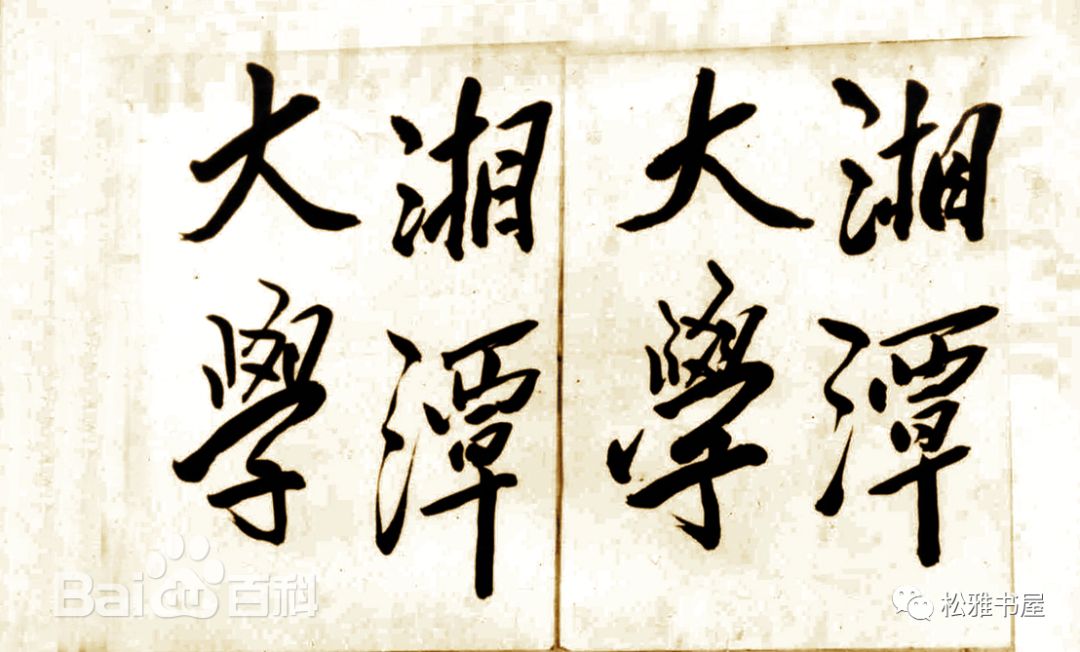 湘潭
大學
湘潭
大學
Bai百科
松雅书屋